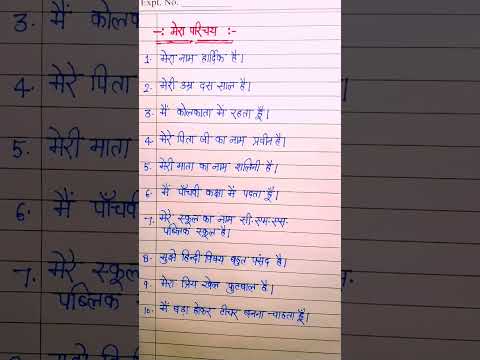 Expt. No.
-: मेरा परिचय :-
1. मेरा नाम हार्दिक है।
2. मेरी उम्र दस साल है।
3. मैं कोलकाता में रहता हूँ।
4. मेरे पिता जी का नाम प्रवीन है।
5. मेरी माता का नाम शलिनी है।
6. मैं पाँचवी कक्षा में पढ़ता हूँ।
7. मेरे स्कूल का नाम सी.एम.एस.
पब्लिक स्कूल है।
8. मुझे हिन्दी विषय बहुत पसंद है।
9. मेरा प्रिय खेल फुटबाल है।
10. मैं बड़ा होकर टीचर बनना चाहता हूँ।
3. मैं
4. मेरे पिता
5. मेरी माता
6. मैं पाँचवी
7. मेरे स्कूल
पब्लिक